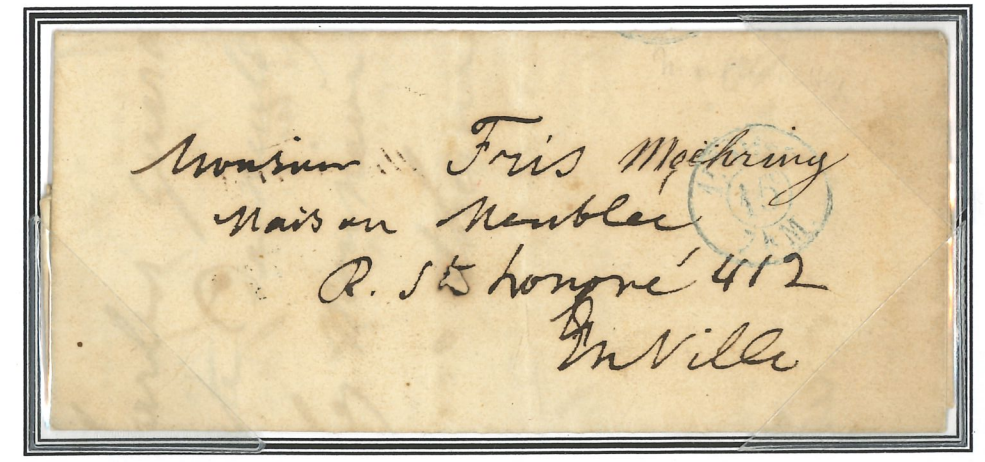 Monsieur Fris Moehring
Maison Meublée
R. St honoré 412
En Ville